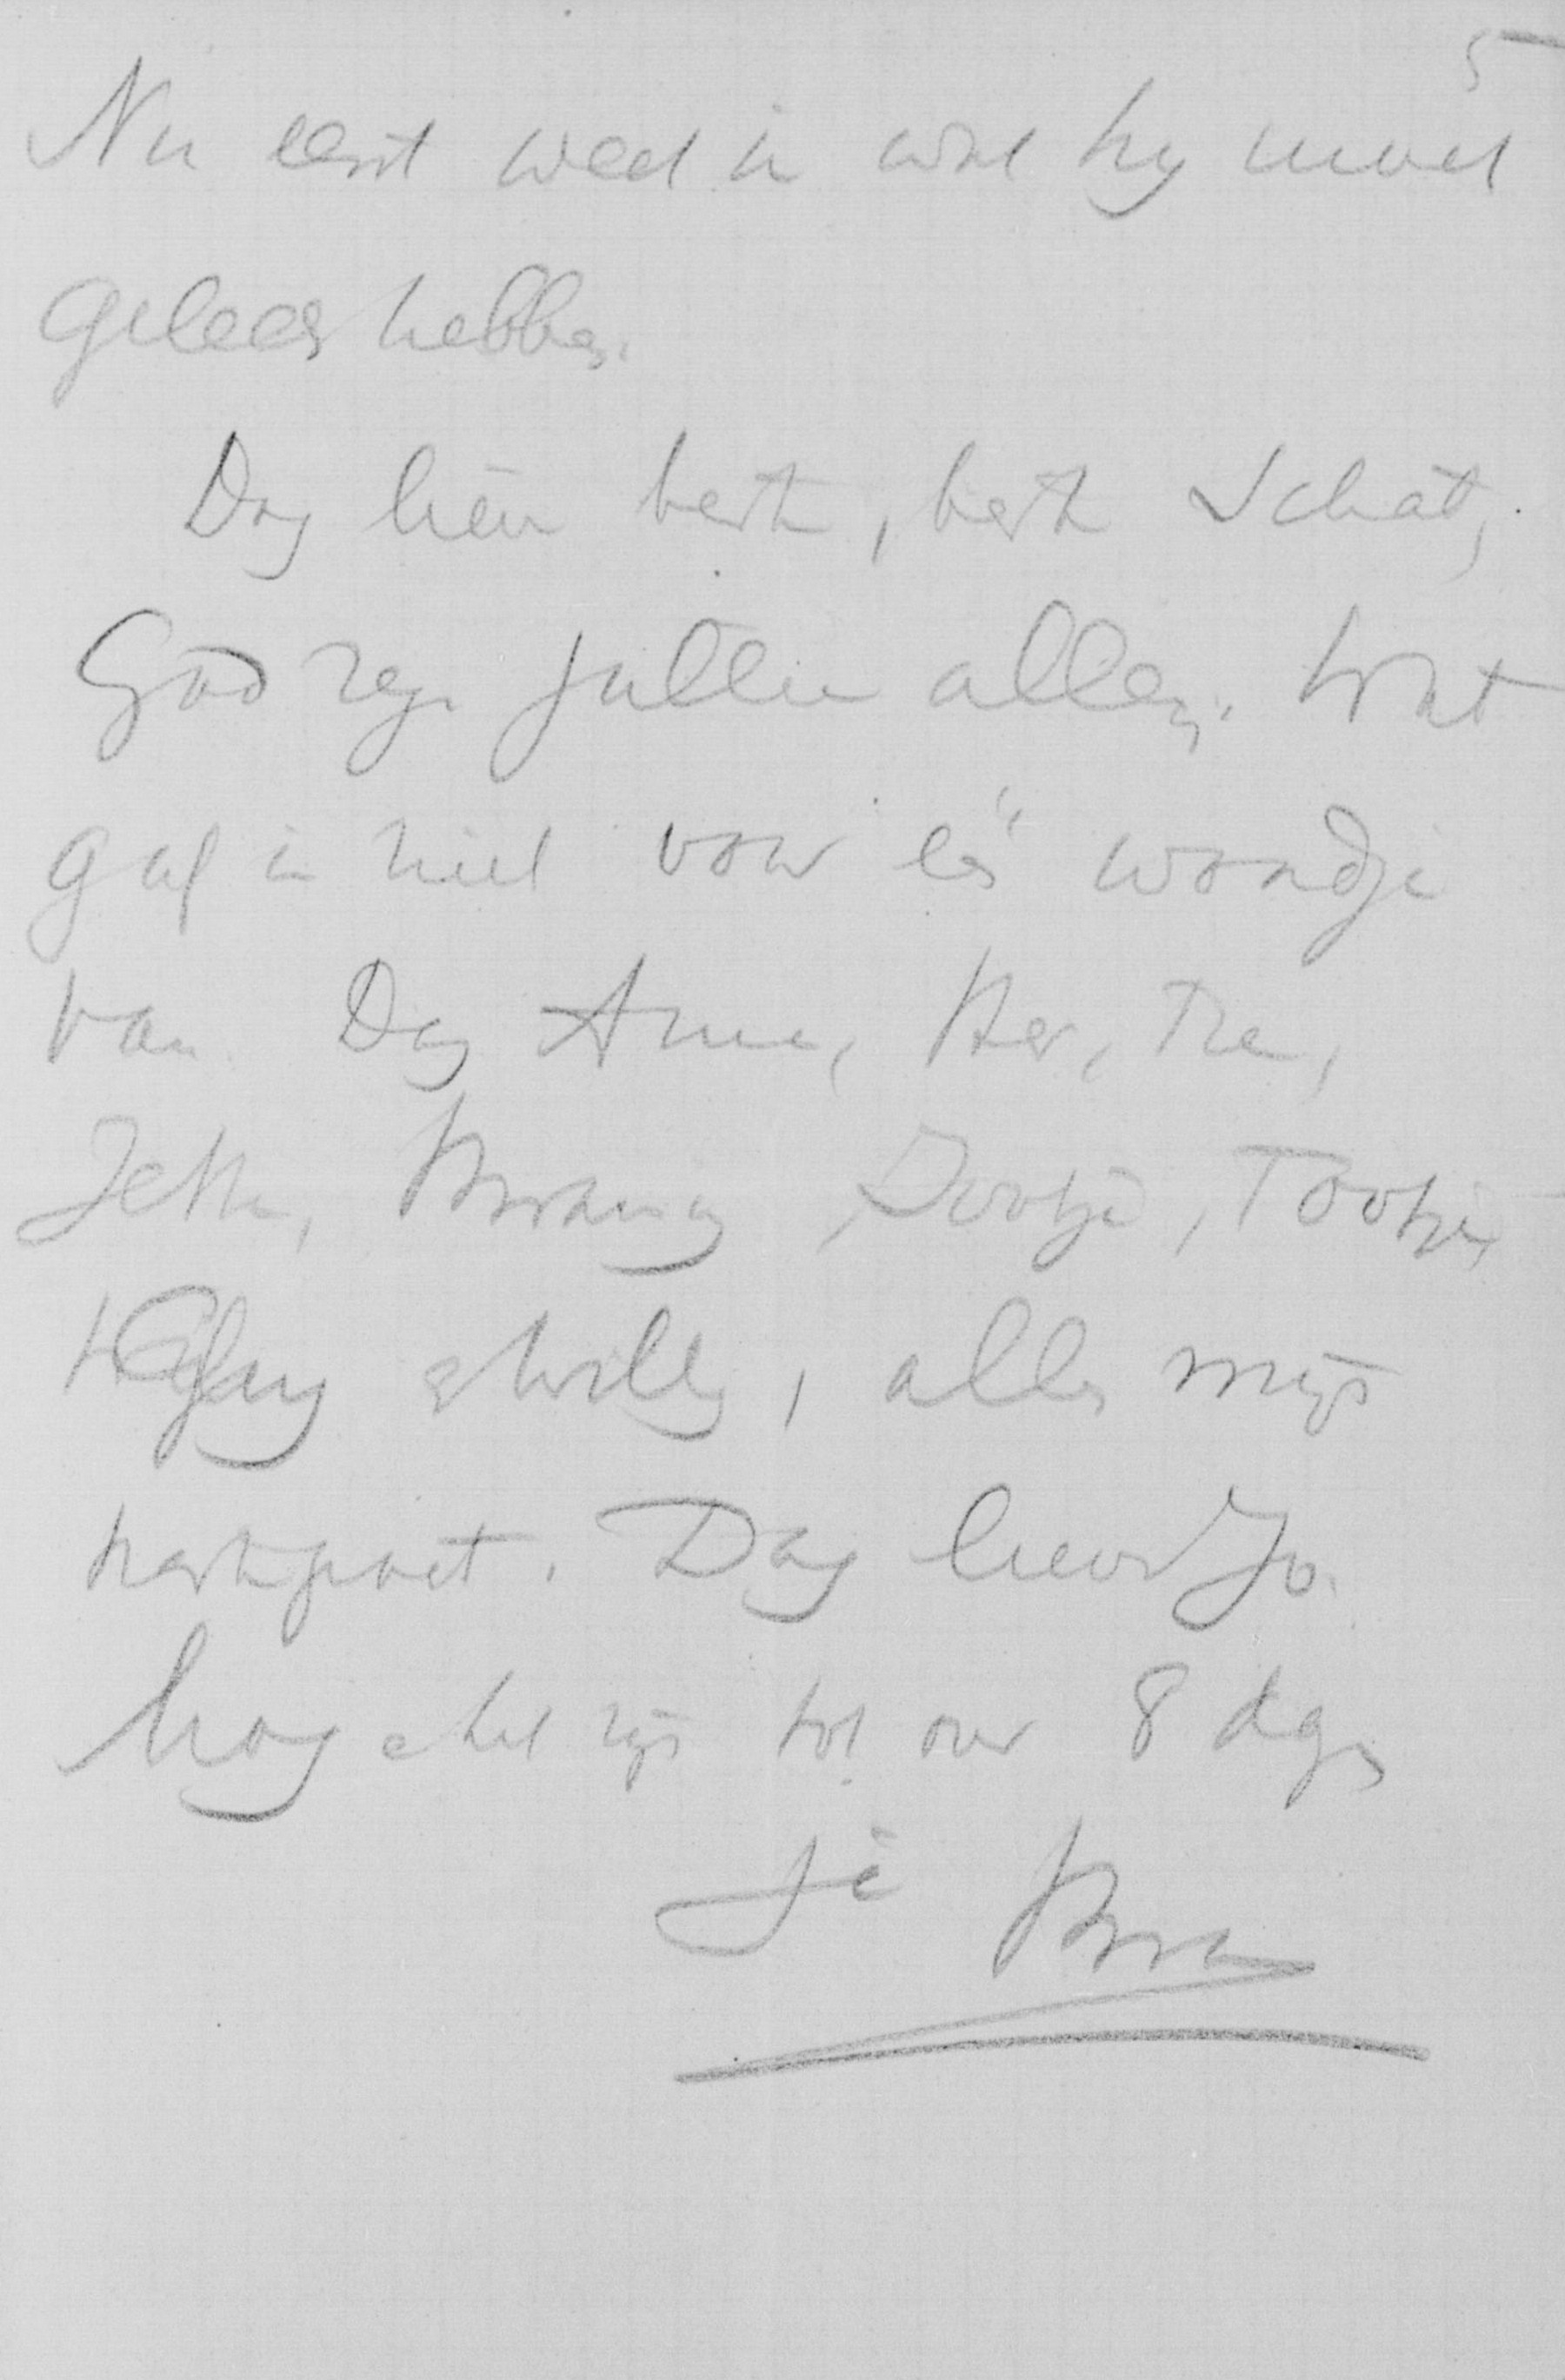 5
Nu eerst weet ik wat hij moet
geleden hebben.
Dag lieve beste, beste Schat,
God zegen jullie allen. Wat
gaf ik niet voor één woordje
van Dag Anne, Ner, Tre,
Jette, Bramy, Dootje, Tootje,
Willy, alles mijn
hartepoet. Dag lieve Jo.
Mag het zijn tot over 8 dagen
je Bram